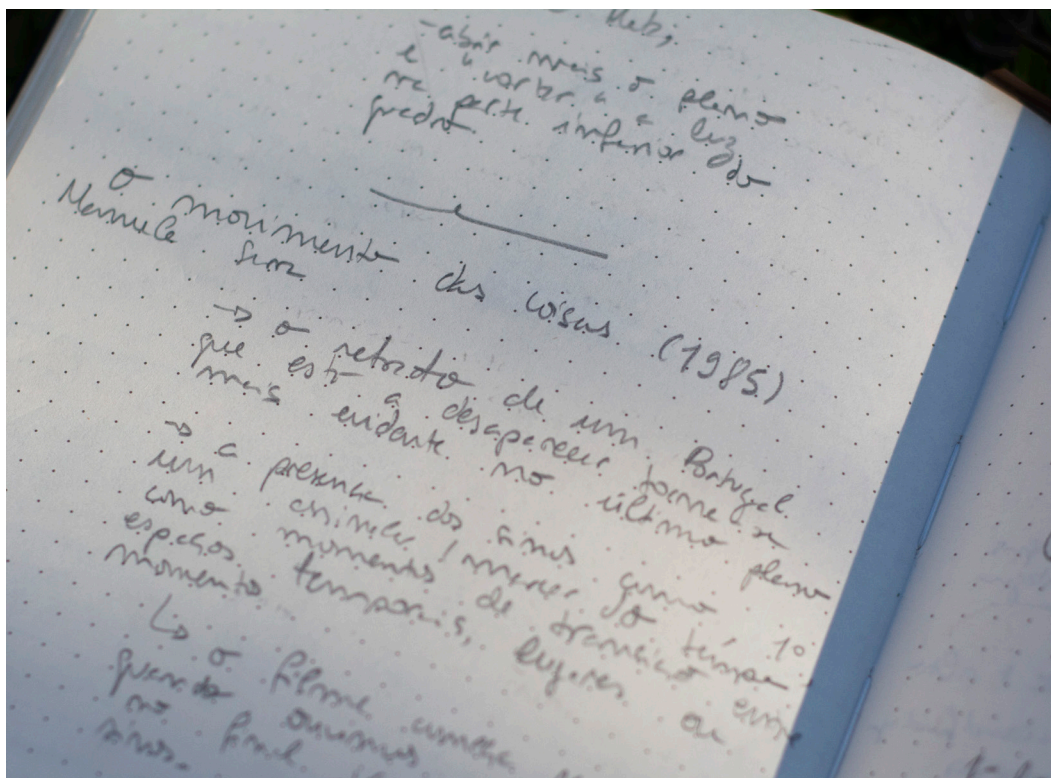 - abrir mais o plano
e
na parte inferior do
quadro.
O movimento das coisas (1985)
Manuela Serra
→ o retrato de um Portugal
que está a desaparecer, torna-se
mais evidente no último plano
→ a presença dos sinos como 1º
um / marcar o tempo,
como momentos de transição entre
espaços temporais, lugares ou
momento
↳ o filme começa
quando ouvimos
no final
sinos.